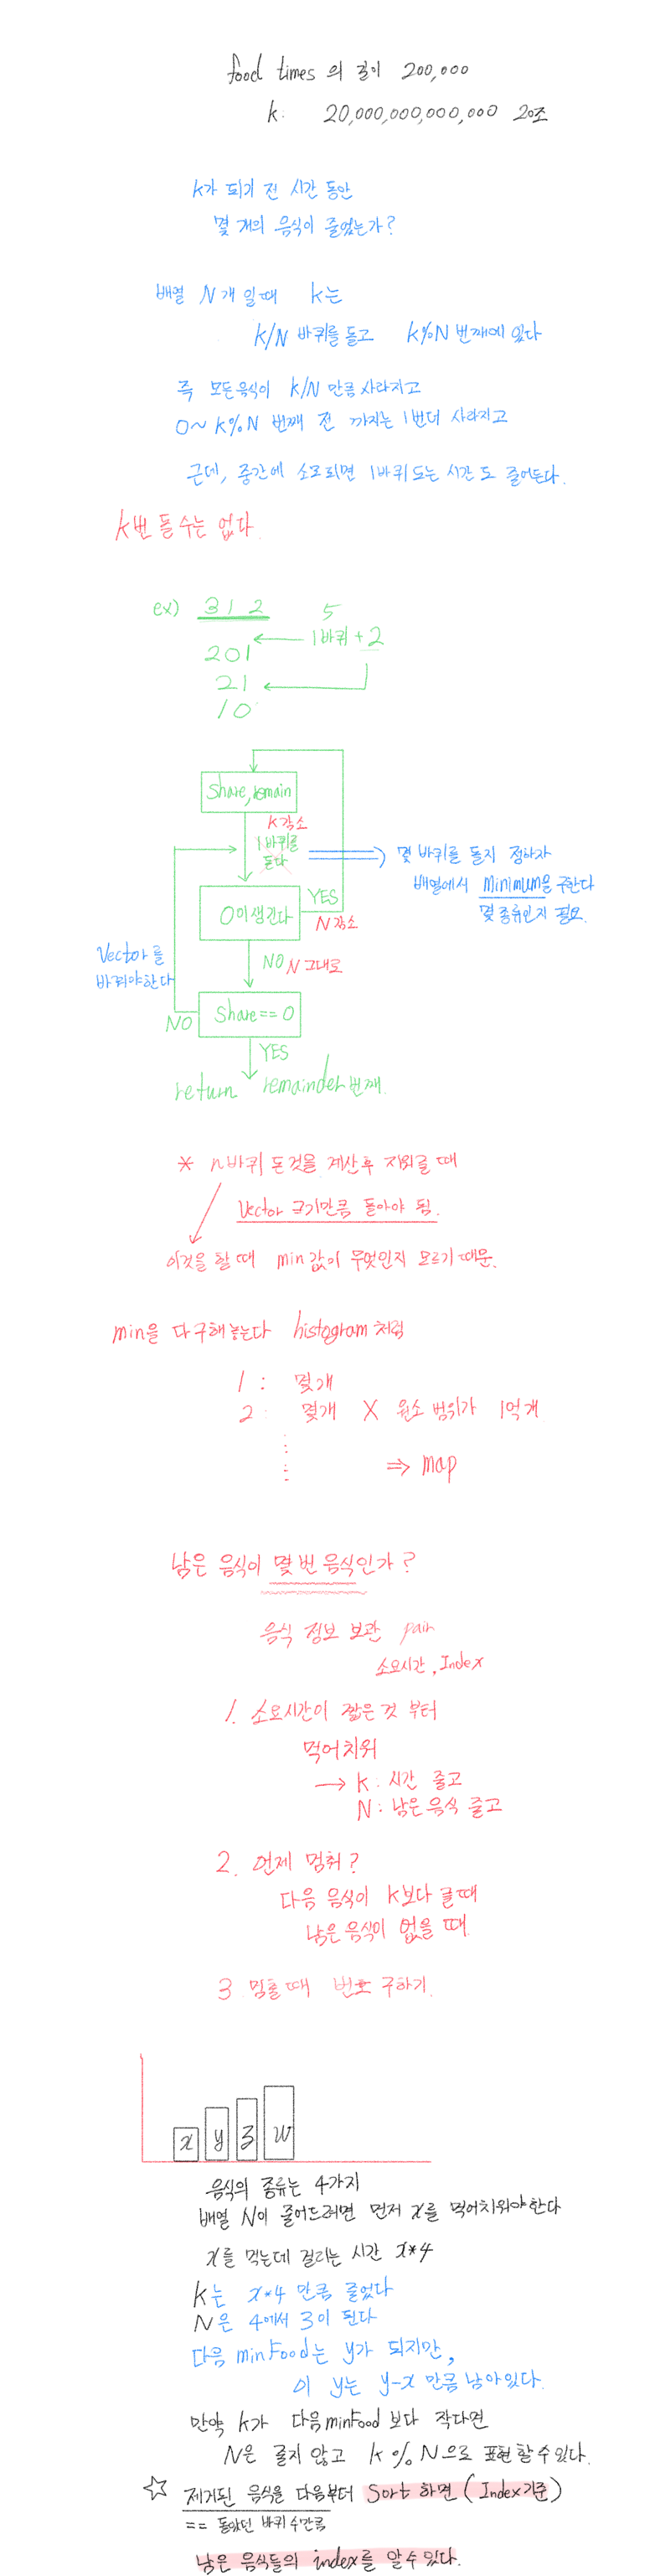 food times 의 길이 200,000
k: 20,000,000,000,000 20조
k가 되기 전 시간 동안
몇 개의 음식이 줄었는가?
배열 N개 일때 k는
k/N 바퀴를 돌고 k%N 번째에 있다
즉 모든음식이 k/N 만큼 사라지고
0~ k%N 번째 전 까지는 1번더 사라지고
근데, 중간에 소모되면 1바퀴 도는 시간도 줄어든다.
k번 돌 수는 없다.
ex) 3 1 2 5
1바퀴 + 2
2 0 1
2 1
1 0
Share, remain
k감소
1바퀴를
돈다
몇 바퀴를 돌지 정하자
배열에서 minimum을 구한다
몇 종류인지 필요.
0이생긴다
YES
N감소
NO N 그대로
Vector를
바꿔야한다
NO
Share == 0
YES
return remainder번째.
* n바퀴 돈것을 계산후 지워줄 때
Vector 크기만큼 돌아야 됨.
이것을 할 때 min 값이 무엇인지 모르기 때문.
min을 다구해놓는다 histogram 처럼
1 : 몇개
2 : 몇개 X 원소 범위가 1억개
⇒ map
남은 음식이 몇 번 음식인가?
음식 정보 보관 pair
소요시간, Index
1. 소요시간이 짧은 것 부터
먹어치워
→ k : 시간 줄고
N : 남은 음식 줄고
2. 언제 멈춰?
다음 음식이 k보다 클때
남은 음식이 없을 때
3 멈출 때 번호 구하기.
x y z w
음식의 종류는 4가지
배열 N이 줄어드려면 먼저 x를 먹어치워야한다
x를 먹는데 걸리는 시간 x*4
k는 x*4 만큼 줄었다
N은 4에서 3이 된다
다음 minFood는 y가 되지만,
이 y는 y-x 만큼 남아있다.
만약 k가 다음 minFood 보다 작다면
N은 줄지 않고 k % N으로 표현 할 수 있다.
☆ 제거된 음식을 다음부터 Sort 하면 (Index기준)
== 돌았던 바퀴 수만큼
남은 음식들의 index를 알 수 있다.